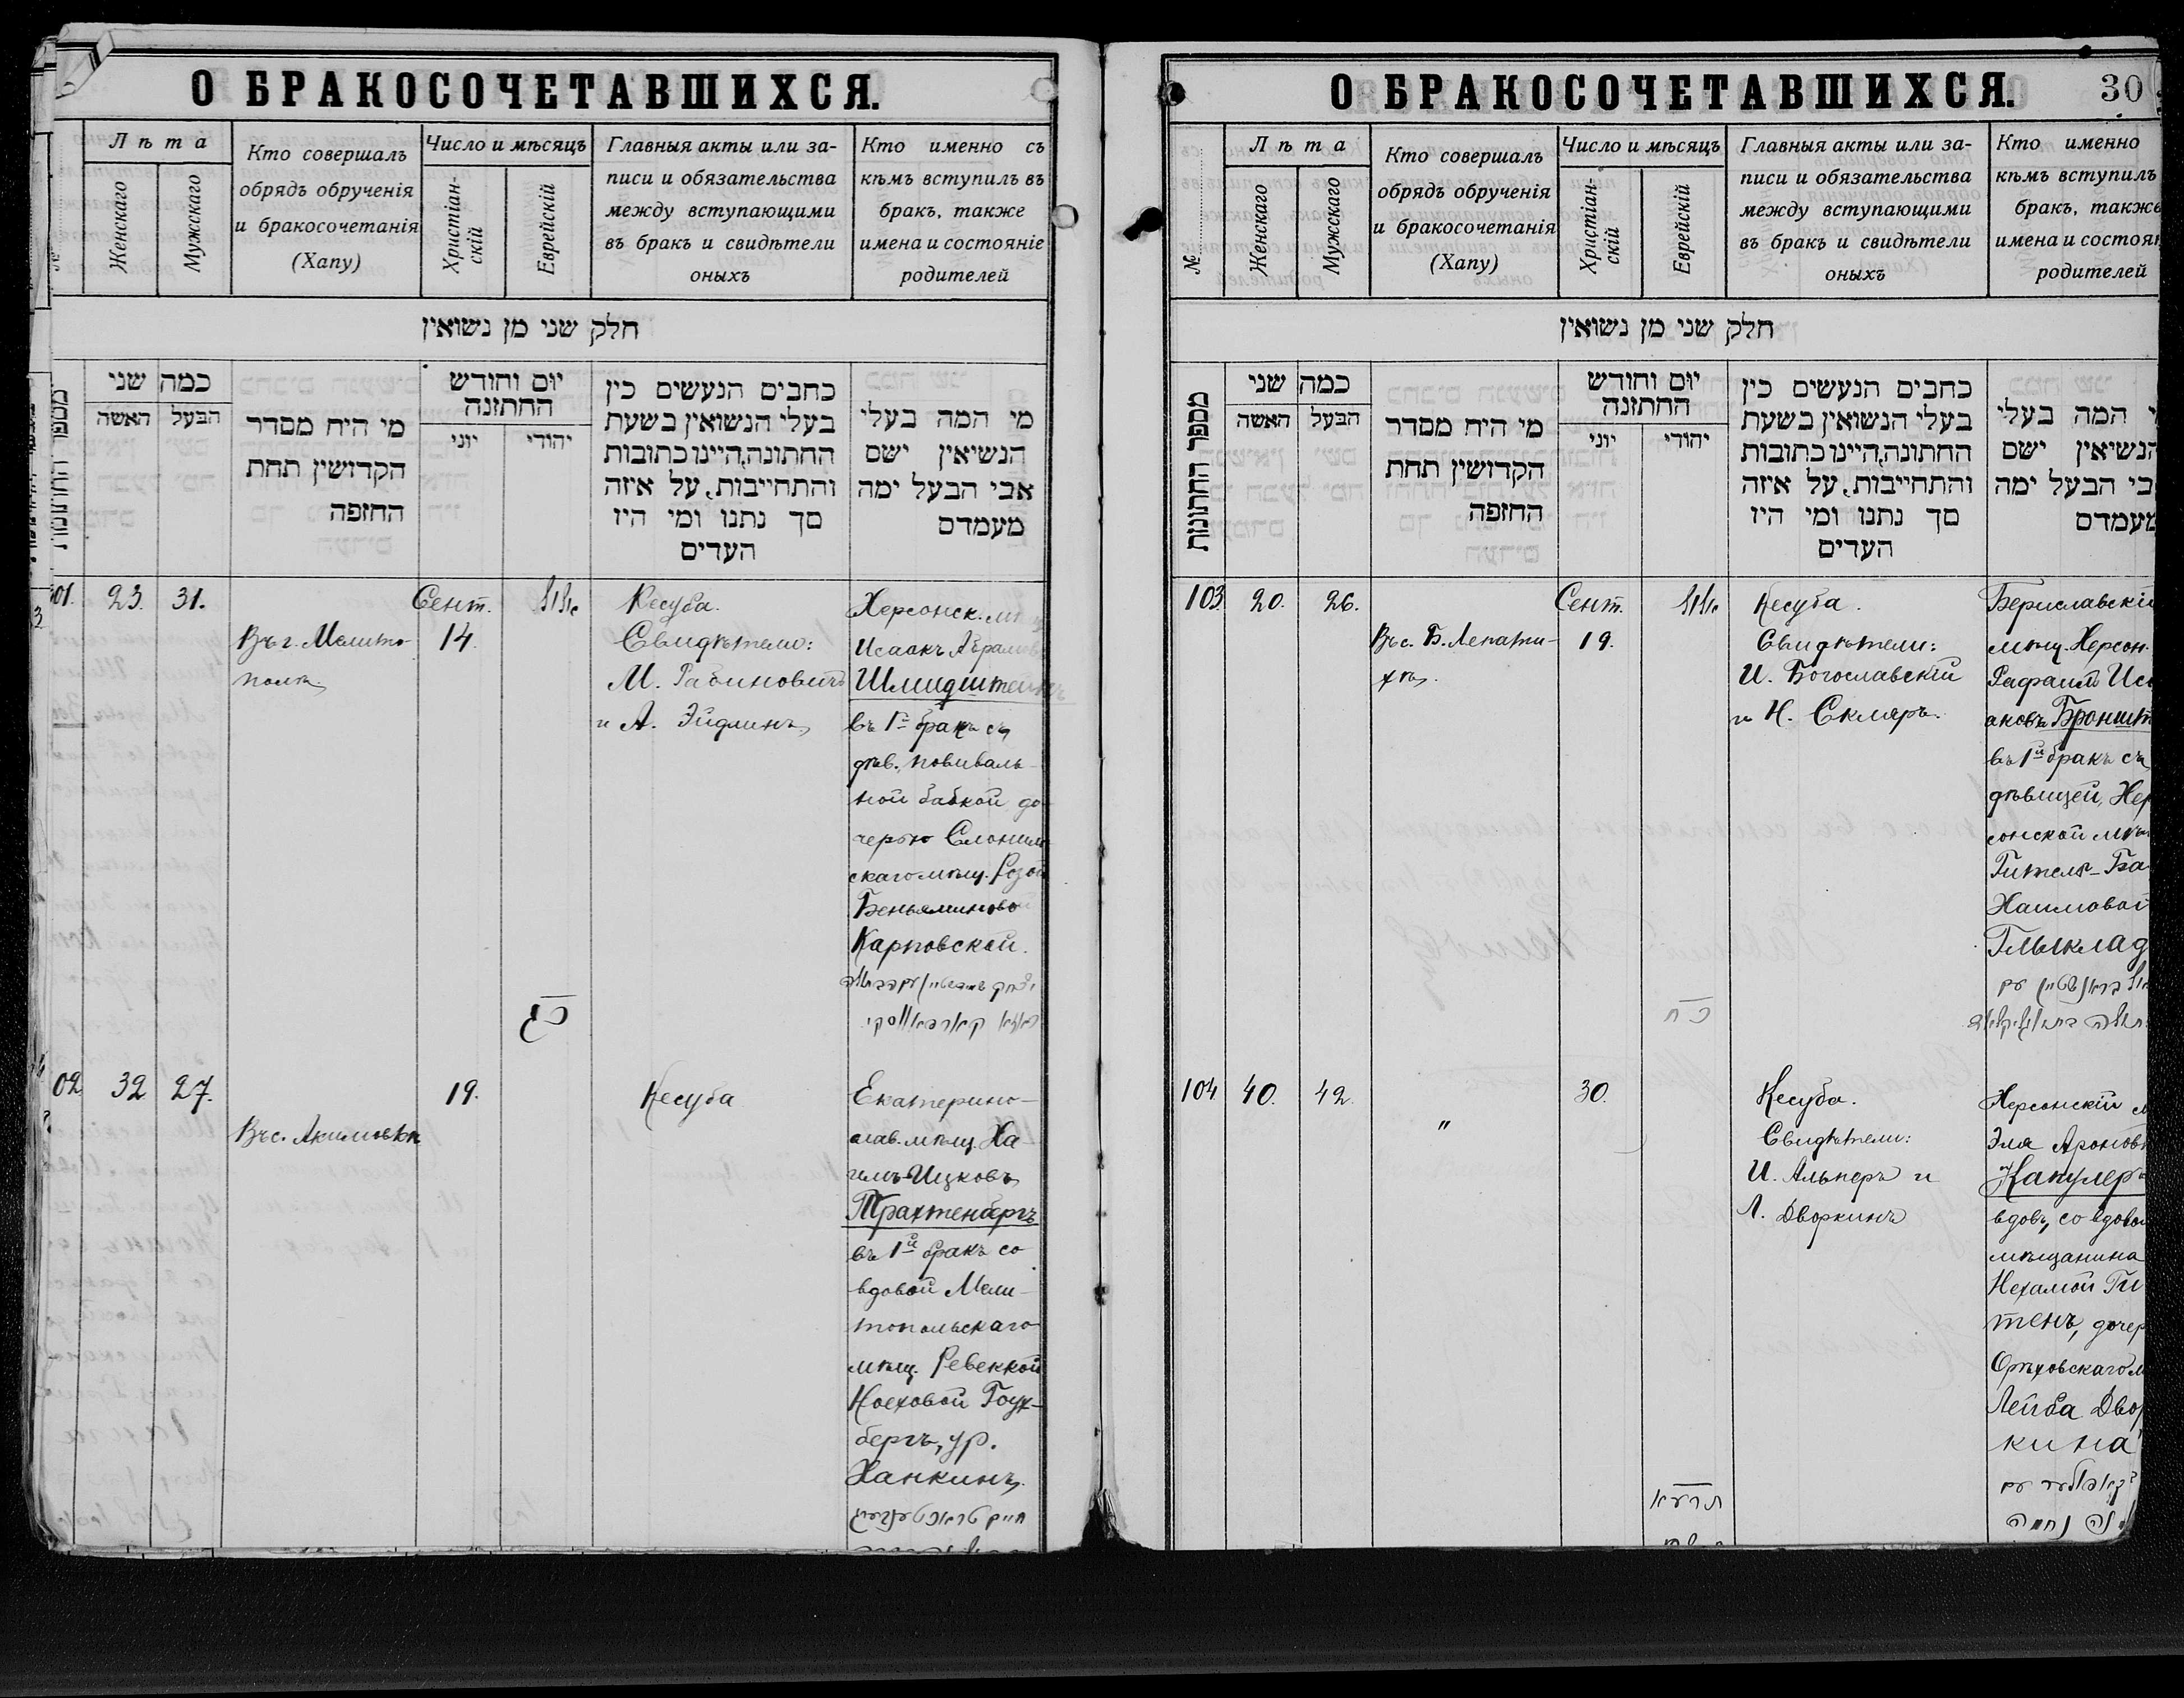 О БРАКОСОЧЕТАВШИХСЯ.
Лѣта
Женскаго
Мужскаго
Кто совершалъ
обрядъ обрученія
и бракосочетанія
(Хапу)
Число и мѣсяцъ
Христіан-
скій
Еврейскій
Главныя акты или за-
писи и обязательства
между вступающими
въ бракъ и свидѣтели
оныхъ
Кто именно съ
кѣмъ вступилъ въ
бракъ, также
имена и состояніе
родителей
חלק שני מן נשואין
מספר החתונות
כמה שני
האשה
הבעל
מי היח מסדר
הקדושין תחת
החזפה
יום וחודש
החתזנה
יוני
יהודי
כחבים הנעשים כין
בעלי הנשואין בשעת
החתונה,היינו כתובות
והתחייבות, על איזה
סך נתנו ומי היו
העדים
מי המה בעלי
הנשיאין ישם
אבי הבעל ימה
מעמדם
01. 23. 31.
Въ г. Мелито-
полѣ
Сент.
14.
אלול
כג
Кесуба.
Свидѣтели:
М. Рабиновичъ
и А. Эйдлинъ
Херсонск. мѣщ
Исаакъ Абрамовъ
Шмидштейнъ
въ 1й бракъ съ
дѣв., повиваль-
ной бабкой до-
черью Слоним
скаго мѣщ. Розой
Беньяминово
Карповской.
02 32 27.
Въ с. Акимовкѣ
19.
Кесуба
Екатерино-
слав. мѣщ. Ха-
имъ-Ицковъ
Трахтенбергъ
въ 1й бракъ со
вдовой Мели-
топольскаго
мѣщ. Ревеккой
Ноеховой Гоух-
бергъ, ур.
Ханкинъ.
О БРАКОСОЧЕТАВШИХСЯ.
30
№
Лѣта
Женскаго
Мужскаго
Кто совершалъ
обрядъ обрученія
и бракосочетанія
(Хапу)
Число и мѣсяцъ
Христіан-
скій
Еврейскій
Главныя акты или за-
писи и обязательства
между вступающими
въ бракъ и свидѣтели
оныхъ
Кто именно
кѣмъ вступилъ
бракъ, также
имена и состоя
родителей
חלק שני מן נשואין
מספר החתונות
כמה שני
האשה
הבעל
מי היח מסדר
הקדושין תחת
החזפה
יום וחודש
החתזנה
יוני
יהודי
כחבים הנעשים כין
בעלי הנשואין בשעת
החתונה,היינו כתובות
והתחייבות, על איזה
סך נתנו ומי היו
העדים
י המה בעלי
הנשיאין ישם
בי הבעל ימה
מעמדם
103. 20. 26.
Въ с. Б. Лепати-
хѣ.
Сент.
19.
אלול
כח
Кесуба.
Свидѣтели:
И. Богославскій
и Н. Скляръ.
Бериславскій
мѣщ. Херсон.
Рафаилъ Иса
аковъ Броншт
въ 1й бракъ съ
дѣвицей, Хер
сонской мѣщ
Гителя-Ба
Хаимовой
Глыклад
104. 40. 42.
"
30.
תרעא
Кесуба.
Свидѣтели:
И. Альперъ и
Л. Дворкинъ
Херсонскій м
Эля Ароновъ
Капулеръ
вдов., со вдовой
мѣщанина
Нехамой Ги
тенъ, дочер
Орѣховскаго м
Лейба Двор
кина